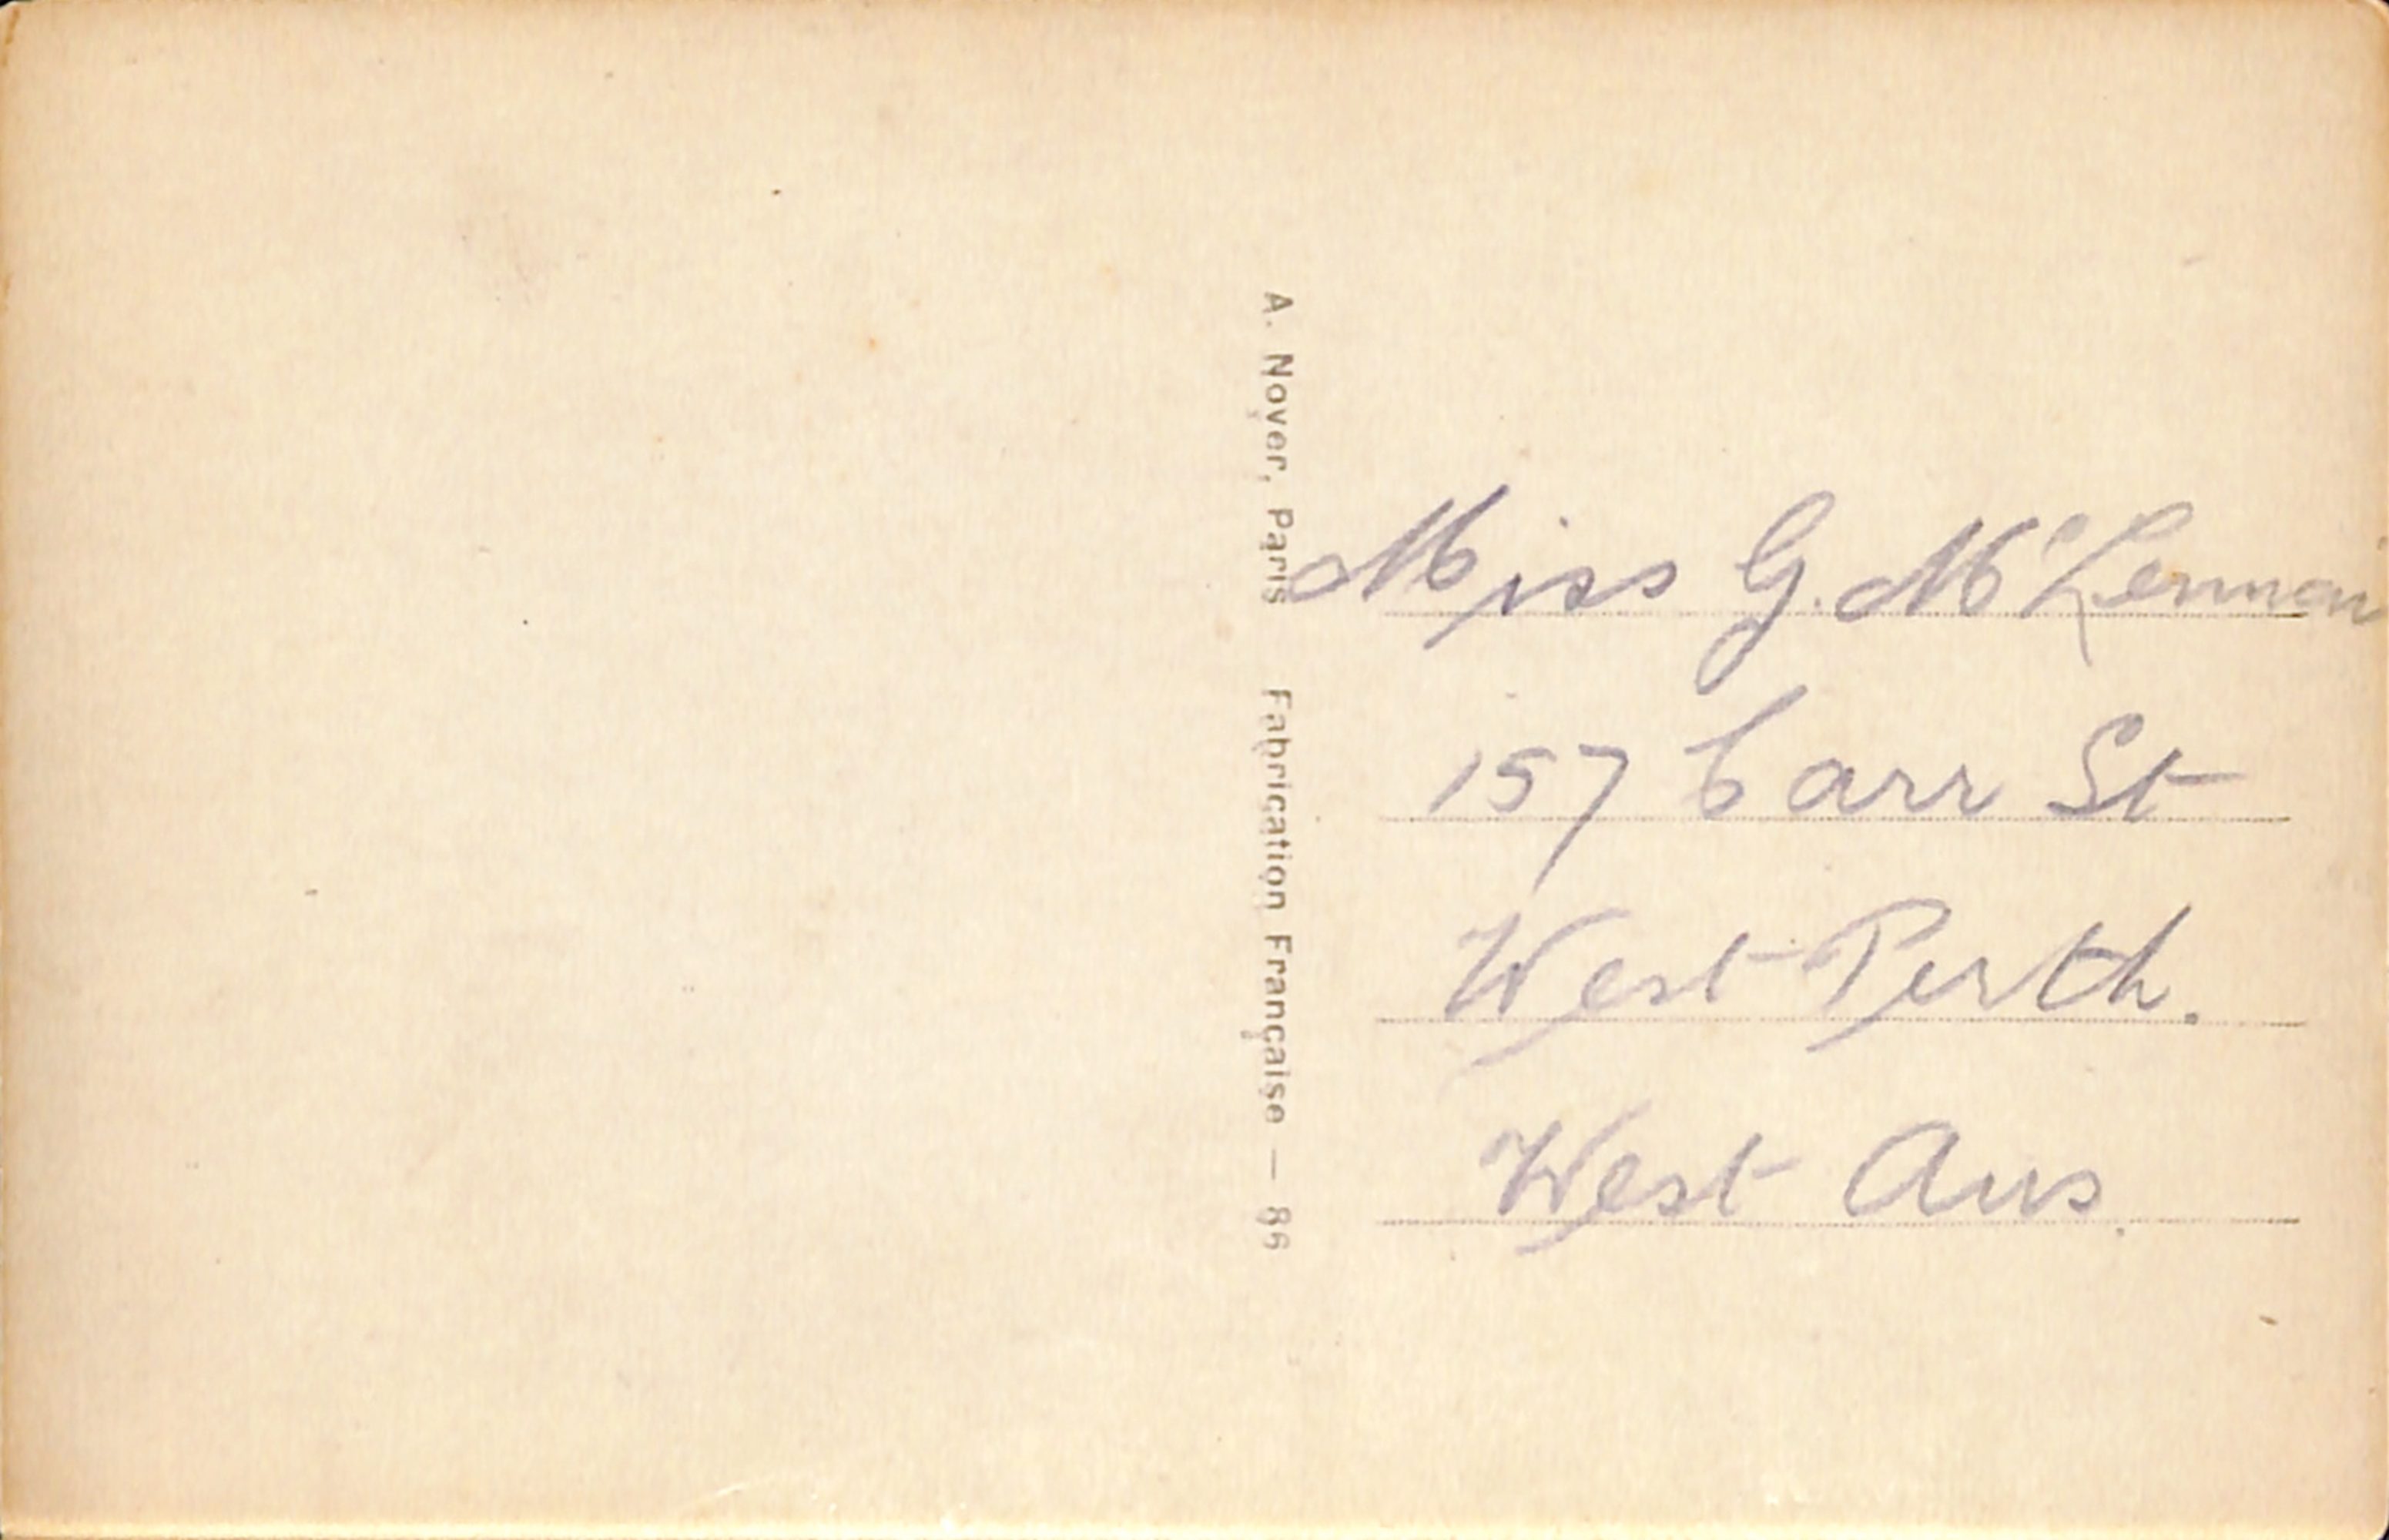 A. Noyer, Paris Fabrication Française — 86
Miss G. McLennan
157 Carr St
West Perth.
West Aus.